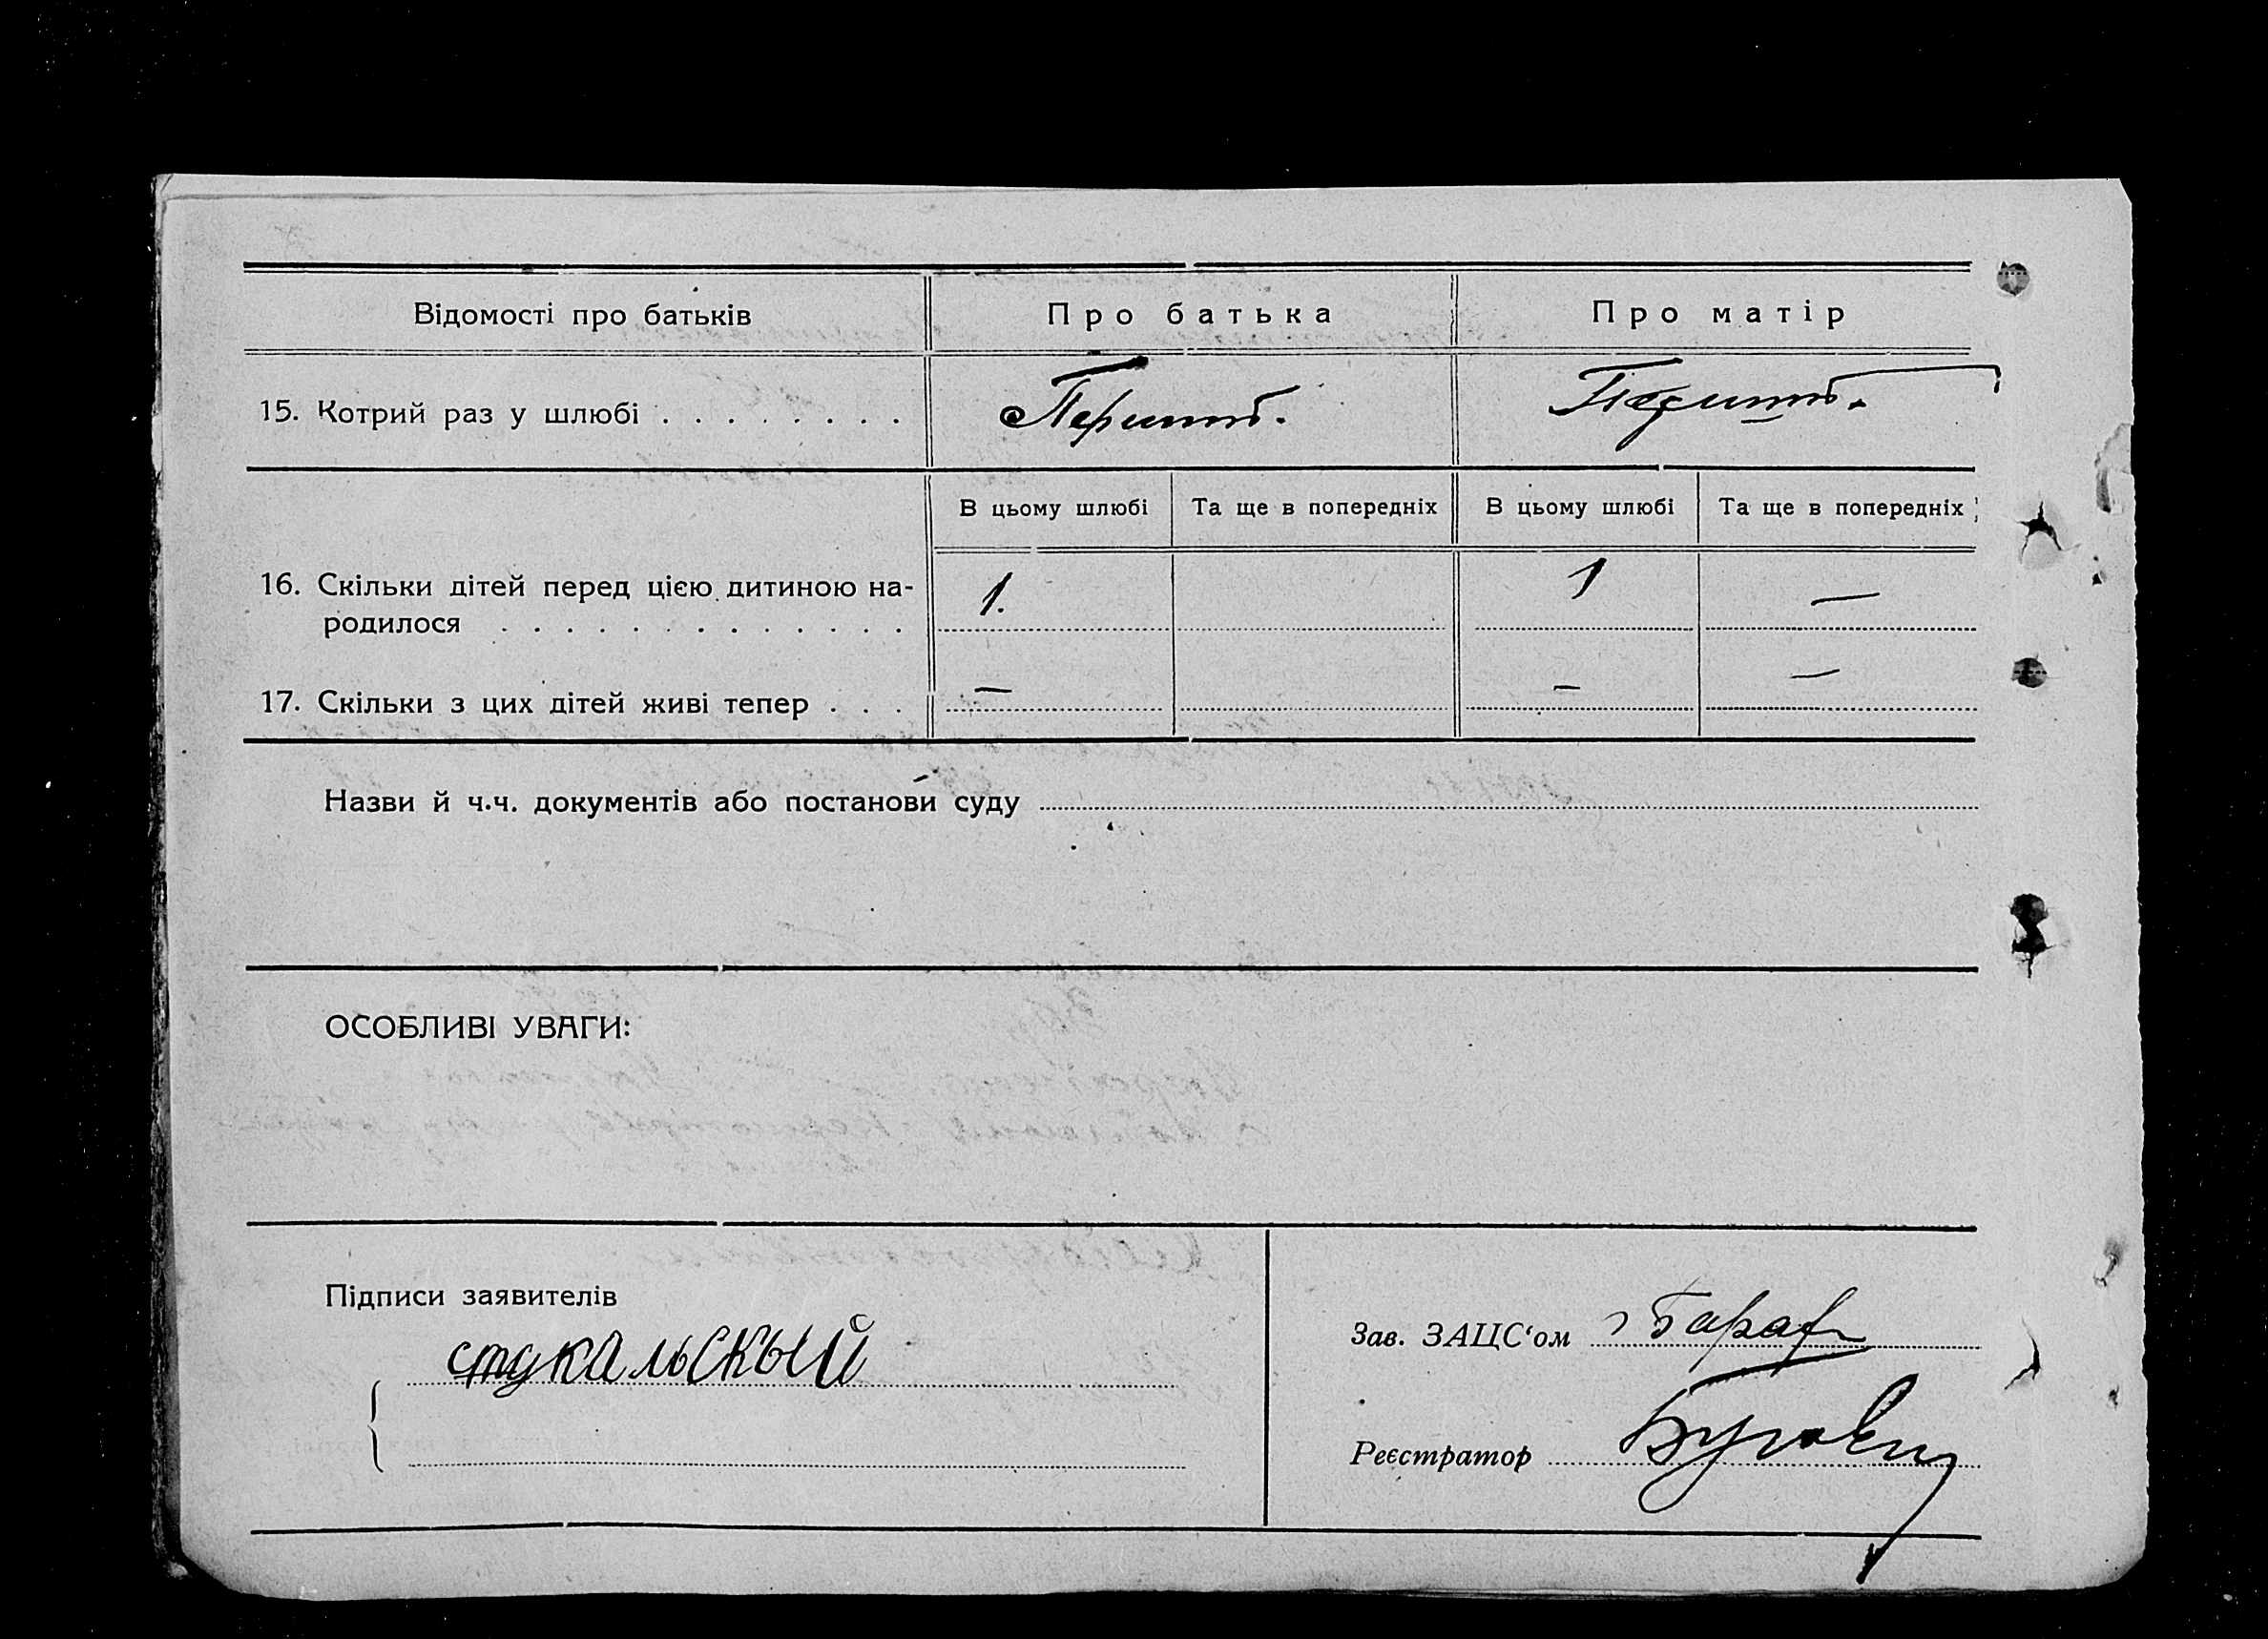 Відомості про батьків
Про батька
Про матір
15. Котрий раз у шлюбі . . . . . . . .
В цьому шлюбі Та ще в попередніх В цьому шлюбі Та ще в попередніх
16. Скільки дітей перед цією дитиною на-
родилося . . . . . . . . . . . . .
1. 1 —
17. Скільки з цих дітей живі тепер . . .
— — —
Назви й ч.ч. документів або постанови суду
ОСОБЛИВІ УВАГИ:
Підписи заявителів
стукальскый
Зав. ЗАЦС‘ом
Реєстратор